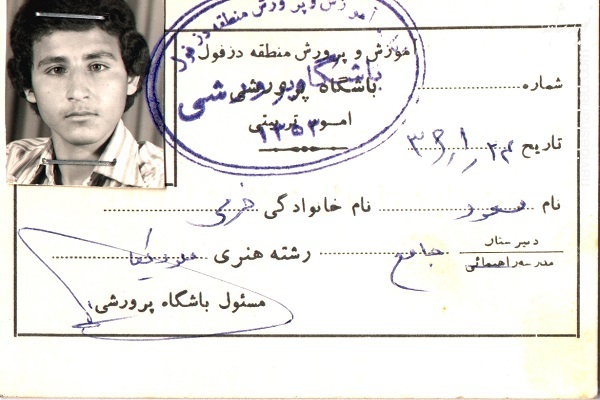 آموزش و پرورش منطقه دزفول
آموزش و پرورش منطقه دزفول
باشگاه پرورشی
باشگاه پرورشی
امور تربیتی
۱۳۵۳
شماره
تاریخ
نام مسعود نام خانوادگی
دبیرستان
مدرسه راهنمائی
جامع رشته هنری
مسئول باشگاه پرورشی: